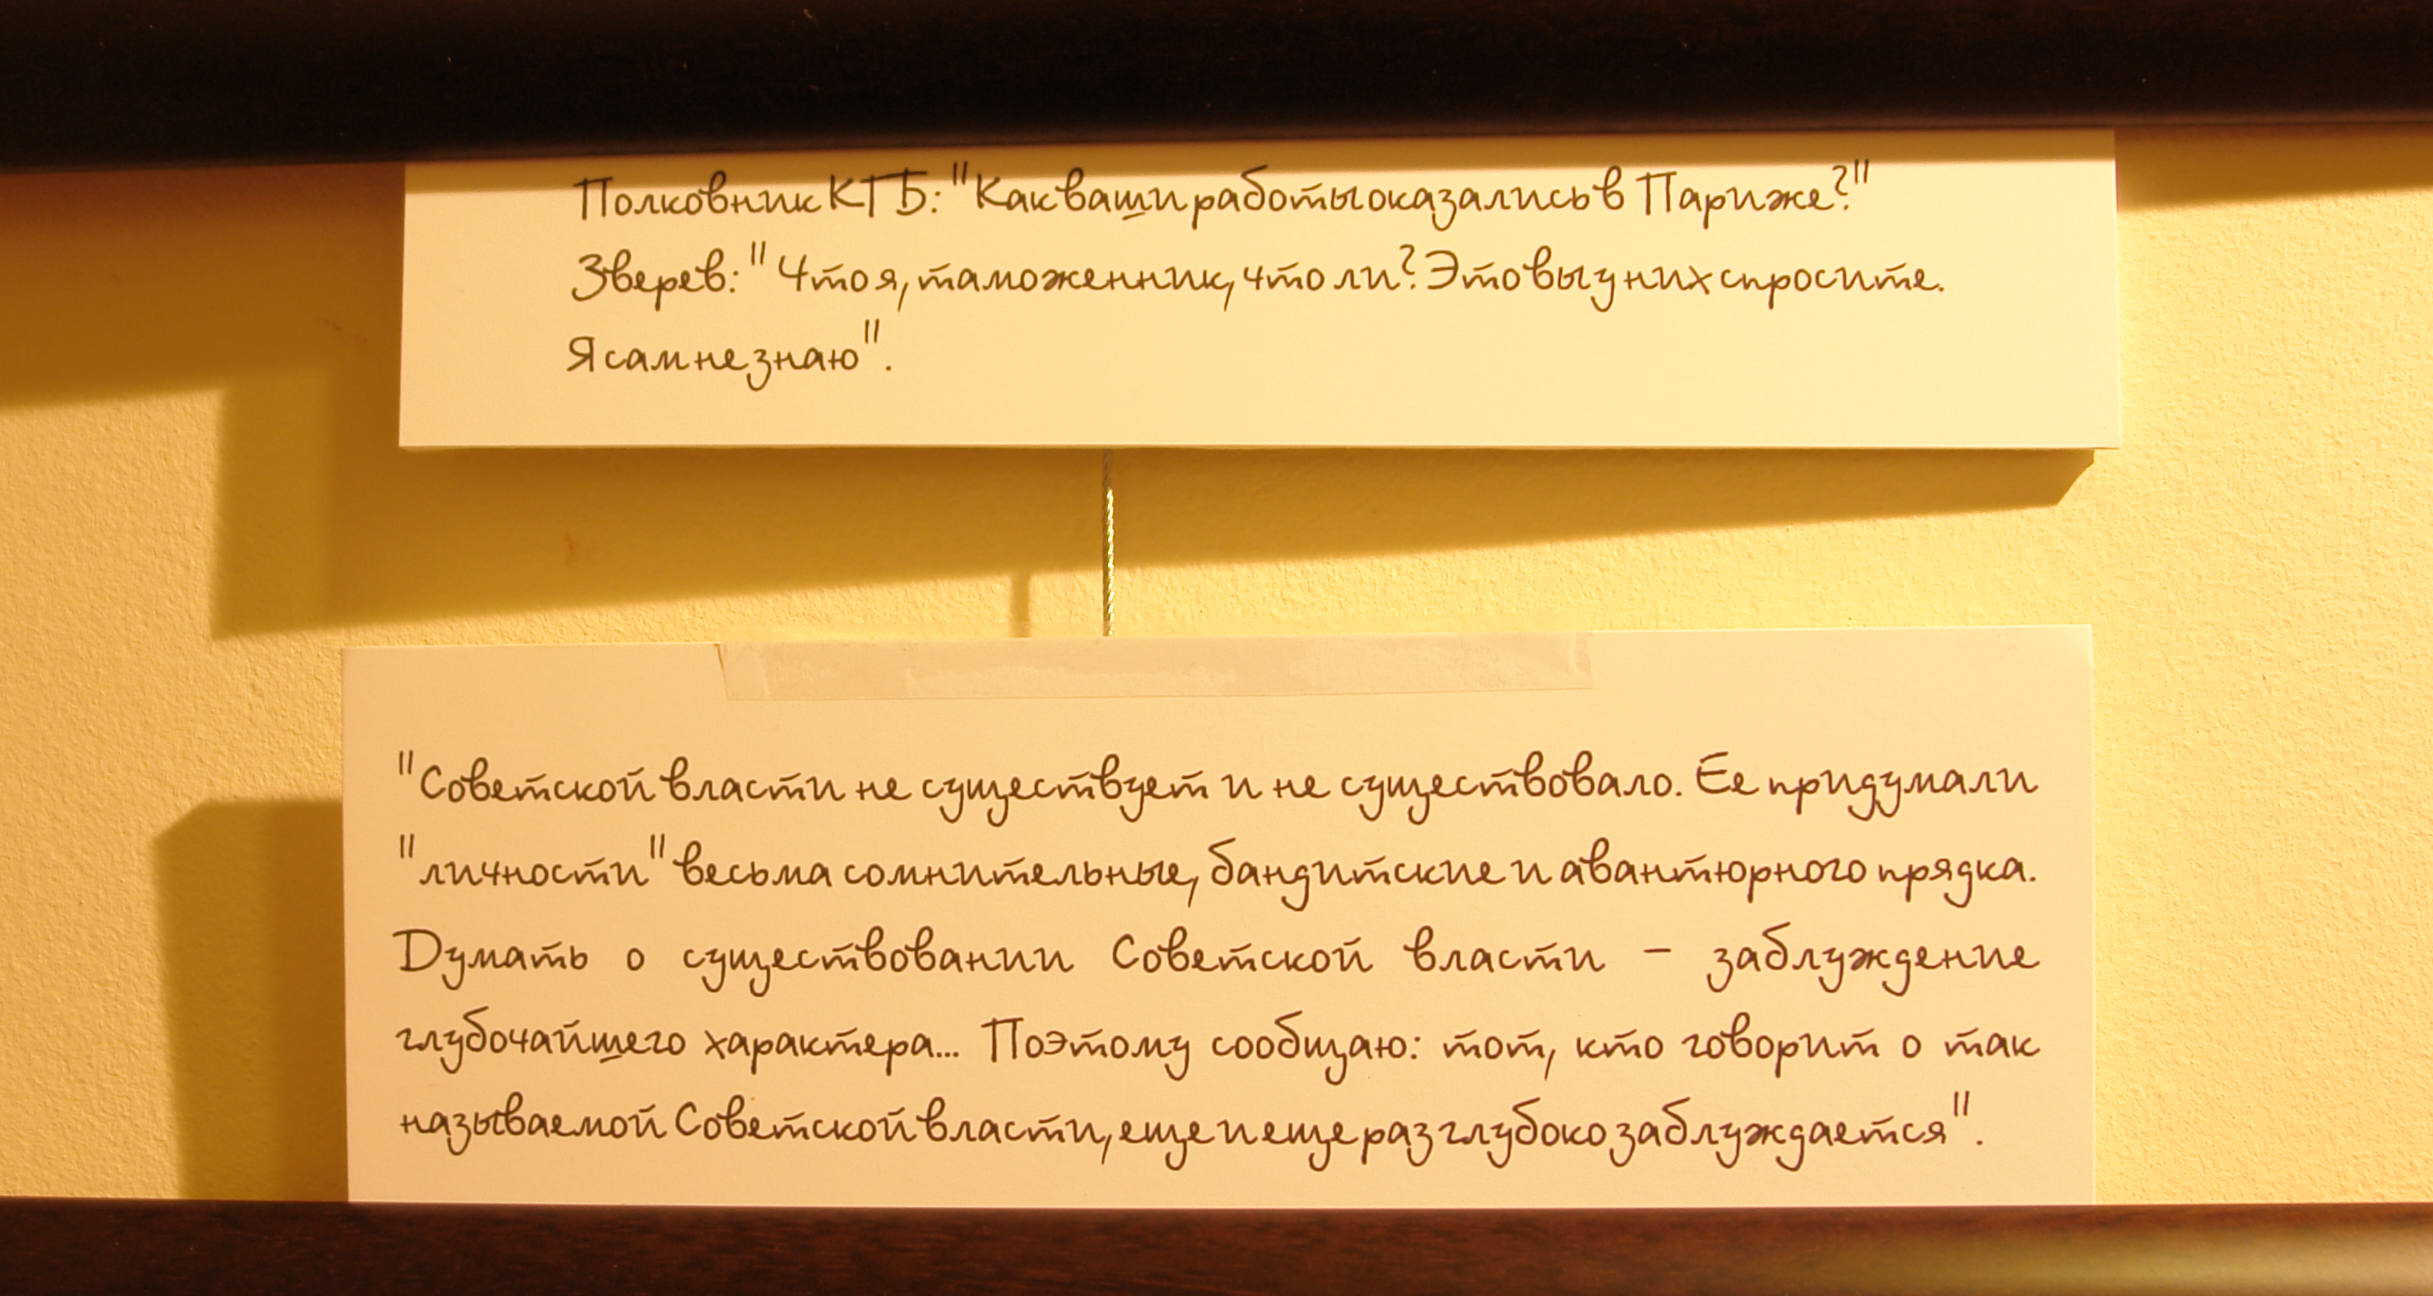 Полковник КГБ: "Как ваши работы оказались в Париже?"
Зверев: "Что я, таможенник, что ли? Это вы у них спросите.
Я сам не знаю".
"Советской власти не существует и не существовало. Ее придумали
"личности" весьма сомнительные, бандитские и авантюрного прядка.
Думать о существовании Советской власти – заблуждение
глубочайшего характера... Поэтому сообщаю: тот, кто говорит о так
называемой Советской власти, еще и еще раз глубоко заблуждается".